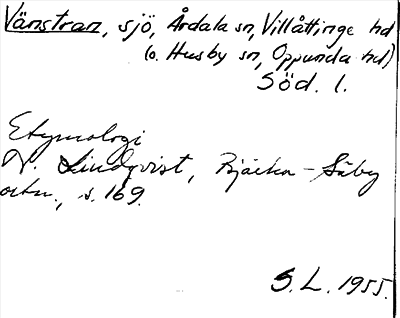 Vänstran, sjö, Årdala sn, Villåttinge hd
(o. Husby sn, Oppunda hd)
Söd. l.
Etymologi
N. Lindqvist, Bjärka-Säby
ortn., s. 169.
S.L. 1955.